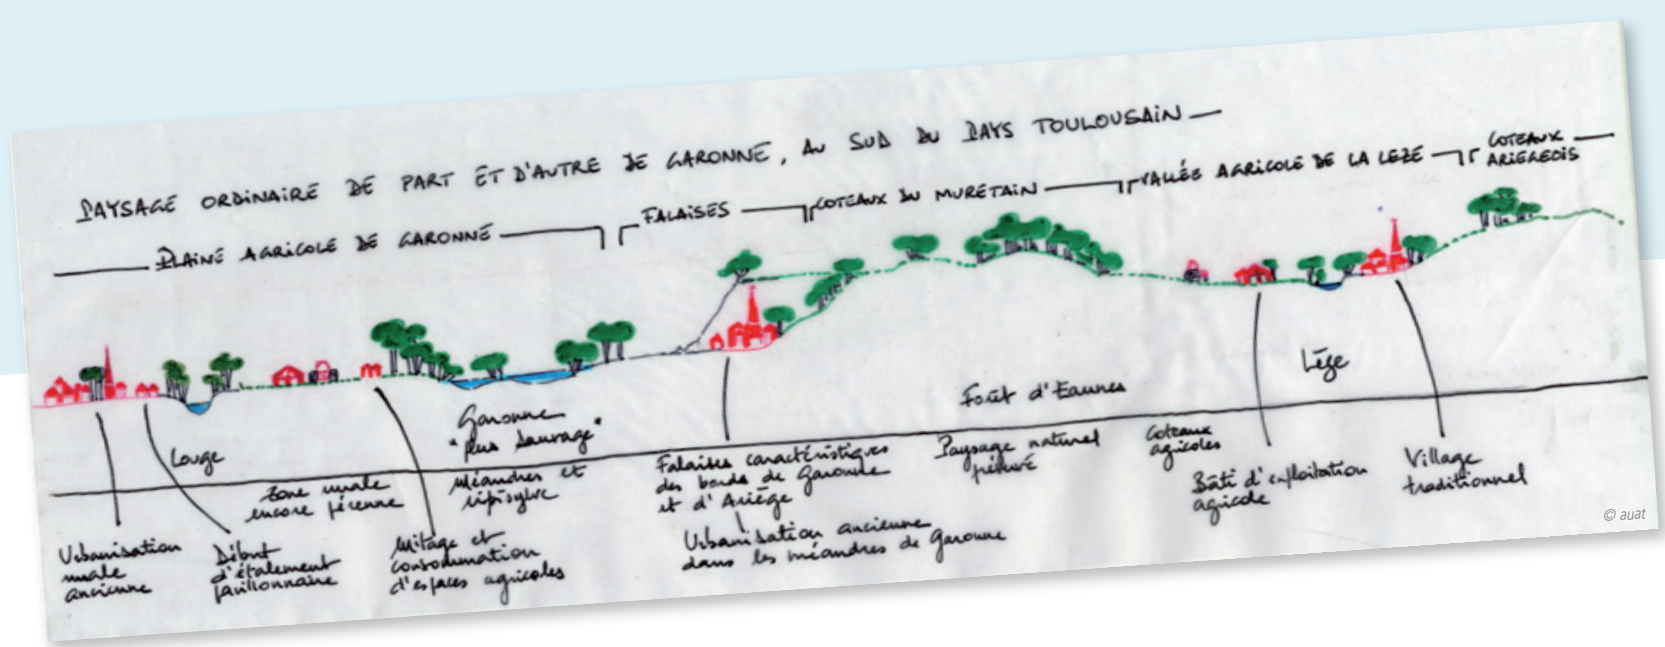 PAYSAGE ORDINAIRE DE PART ET D'AUTRE DE GARONNE, AU SUD DU PAYS TOULOUSAIN
PLAINE AGRICOLE DE GARONNE
FALAISES
COTEAUX DU MURETAIN
VALLÉE AGRICOLE DE LA LEZE
COTEAUX
ARIEGEOIS
Louge
Garonne
"plus sauvage"
Forêt d'Eaunes
Lèze
Zone rurale
encore pérenne
Méandres et
ripisylve
Falaises caractéristiques
des bords de Garonne
et d'Ariège
Paysage naturel
préservé
Coteaux
agricoles
Urbanisation
rurale
ancienne
Début
d'étalement
pavillonnaire
Mitage et
consommation
d'espaces agricoles
Urbanisation ancienne
dans les méandres de Garonne
Bâti d'exploitation
agricole
Village
traditionnel
© auat